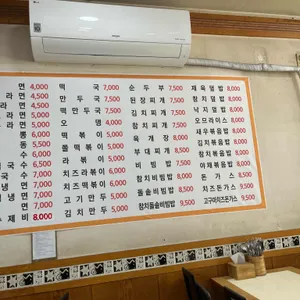 면 4,000
라면 4,500
라면 4,500
라면 5,000
라면 5,000
뽕 6,000
동 5,500
수 6,000
국수 6,500
냉면 7,000
냉면 7,000
면 7,000
수제비 8,000
떡국 7,000
만두국 7,500
떡만두국 7,500
오뎅 4,000
떡볶이 5,000
쫄떡볶이 5,500
라볶이 6,000
치즈라볶이 6,500
치즈떡볶이 6,000
고기만두 5,000
김치만두 5,000
순두부 7,500
된장찌개 7,500
김치찌개 7,500
참치찌개 7,500
육개장 8,000
부대찌개 8,500
비빔밥 7,500
참치비빔밥 8,500
돌솥비빔밥 8,500
참치돌솥비빔밥 9,500
제육덮밥 8,000
참치덮밥 8,500
낙지덮밥 8,500
오므라이스 8,000
새우볶음밥 8,000
김치볶음밥 8,000
참치볶음밥 8,500
야채볶음밥 8,000
돈가스 8,500
치즈돈가스 9,500
고구마치즈돈가스 9,500